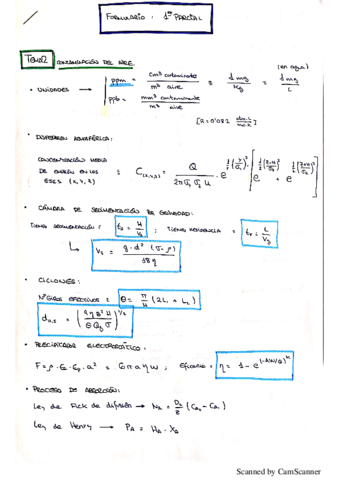 FORMULARIO : 1er PARCIAL
TEMA 2 CONTAMINACIÓN DEL AIRE.
(en agua)
• UNIDADES → ppm = cm³ contaminante / m³ aire ≡ 1 mg / Kg = 1 mg / L
ppb = mm³ contaminante / m³ aire
[R = 0'082 atm·L / mol·K]
• DISPERSIÓN ATMOSFÉRICA:
CONCENTRACIÓN MEDIA
EN LOS
EJES (x, y, z) : C(x,y,z) = Q / 2π σy σz u · e
• CÁMARA DE SEDIMENTACIÓN POR GRAVEDAD:
TIEMPO SEDIMENTACIÓN : ts = H / Vs ; TIEMPO RESIDENCIA : tr = L / Vg
Vs = g · d² (σ - ρ) / 18 η
• CICLONES:
Nº GIROS EFECTIVOS : θ = π / H (2L1 + L2)
d0,5 = ( 9 η B² H / θ Qg σ )^1/2
• PRECIPITADOR ELECTROSTÁTICO:
= 6 π a η w ; Eficacia : η = 1 - e
• PROCESO DE ABSORCIÓN:
Ley de Fick de difusión → NA =
Ley de Henry → PA = HA · XA
Scanned by CamScanner